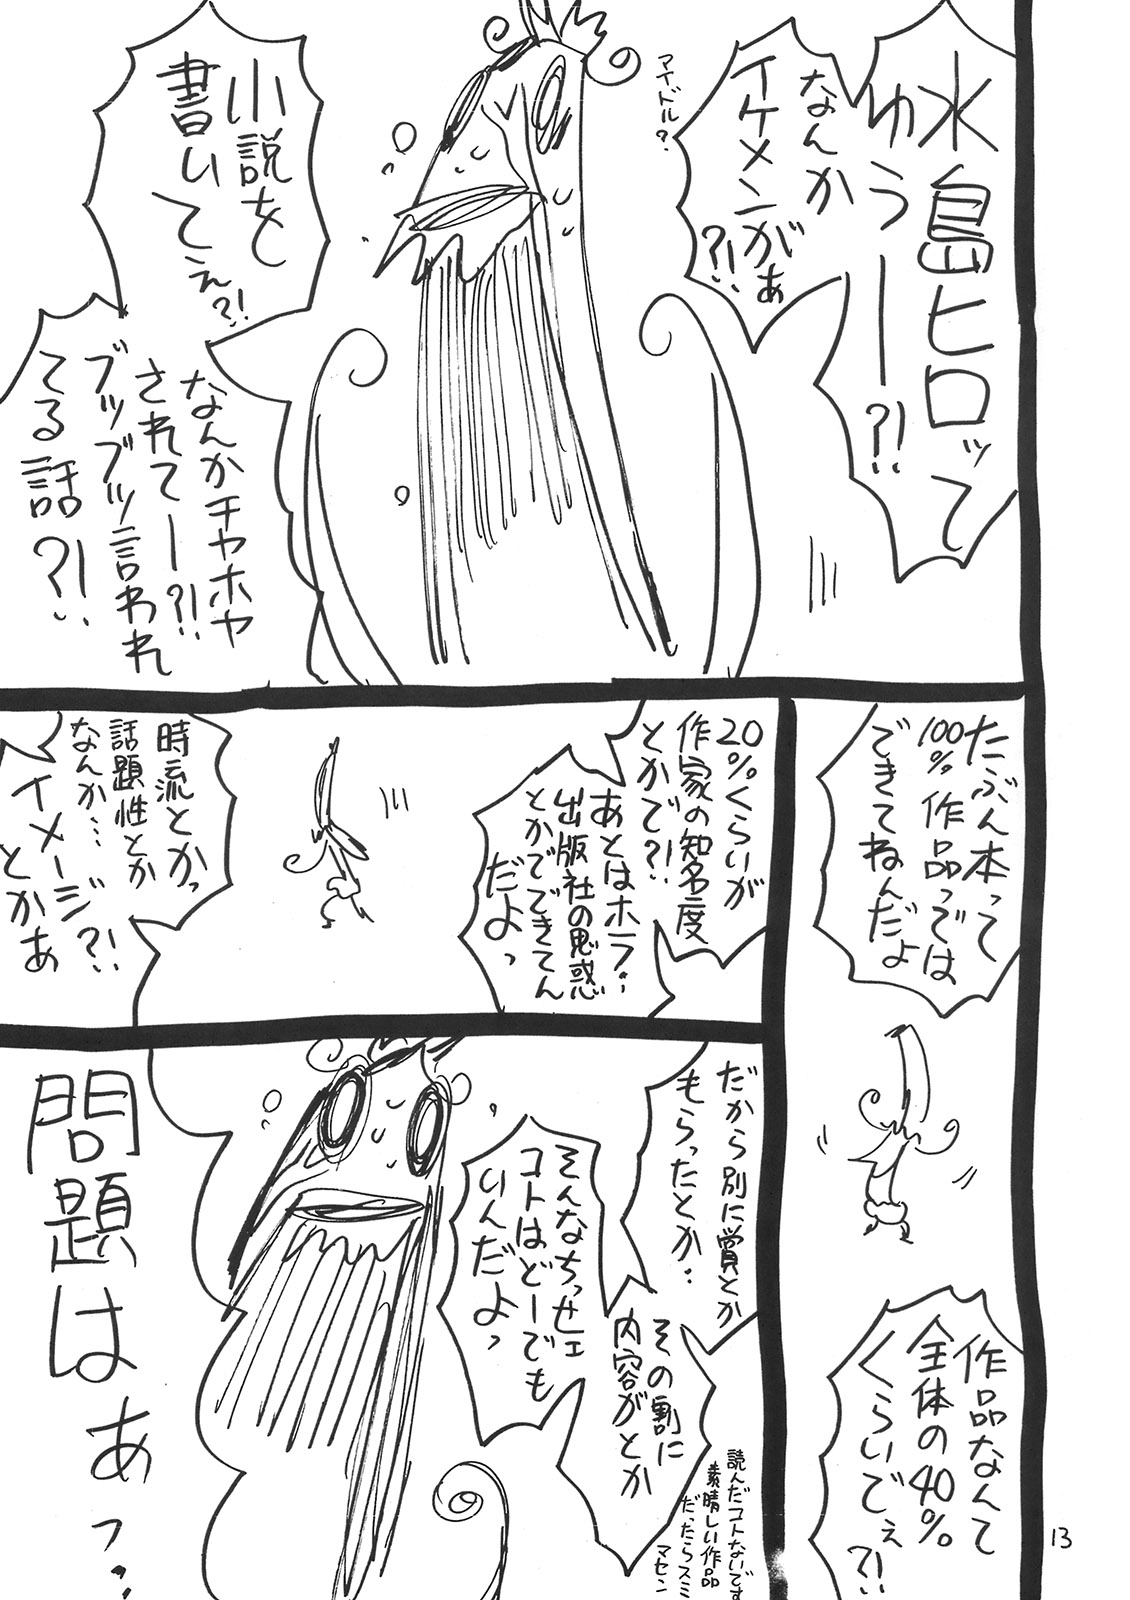 水島ヒロって
ゅうー?!
なんか
イケメンがぁ
?!
マイドル?
小説を
書いてぇ?!
なんかチヤホヤ
されてー?!
ブツブツ言われ
てる話?!
たぶん本って
100%作品っでは
できてねんだよ
作品なんて
全体の40%
くらいでぇ
?!
20%くらいが
作家の知名度
とかで?!
あとはホラ‥
出版社の思惑
とかでできてん
だよっ
時流とかっ
話題性とか
なんか…
イメージ?!
とかぁ
だから別に賞とか
もらったとか‥
その割に
内容がとか
そんなちっせェ
コトはどーでも
いんだよっ
読んだコトないです
素晴しい作品
だったらスミ
マセン
問題はぁっ‥
13